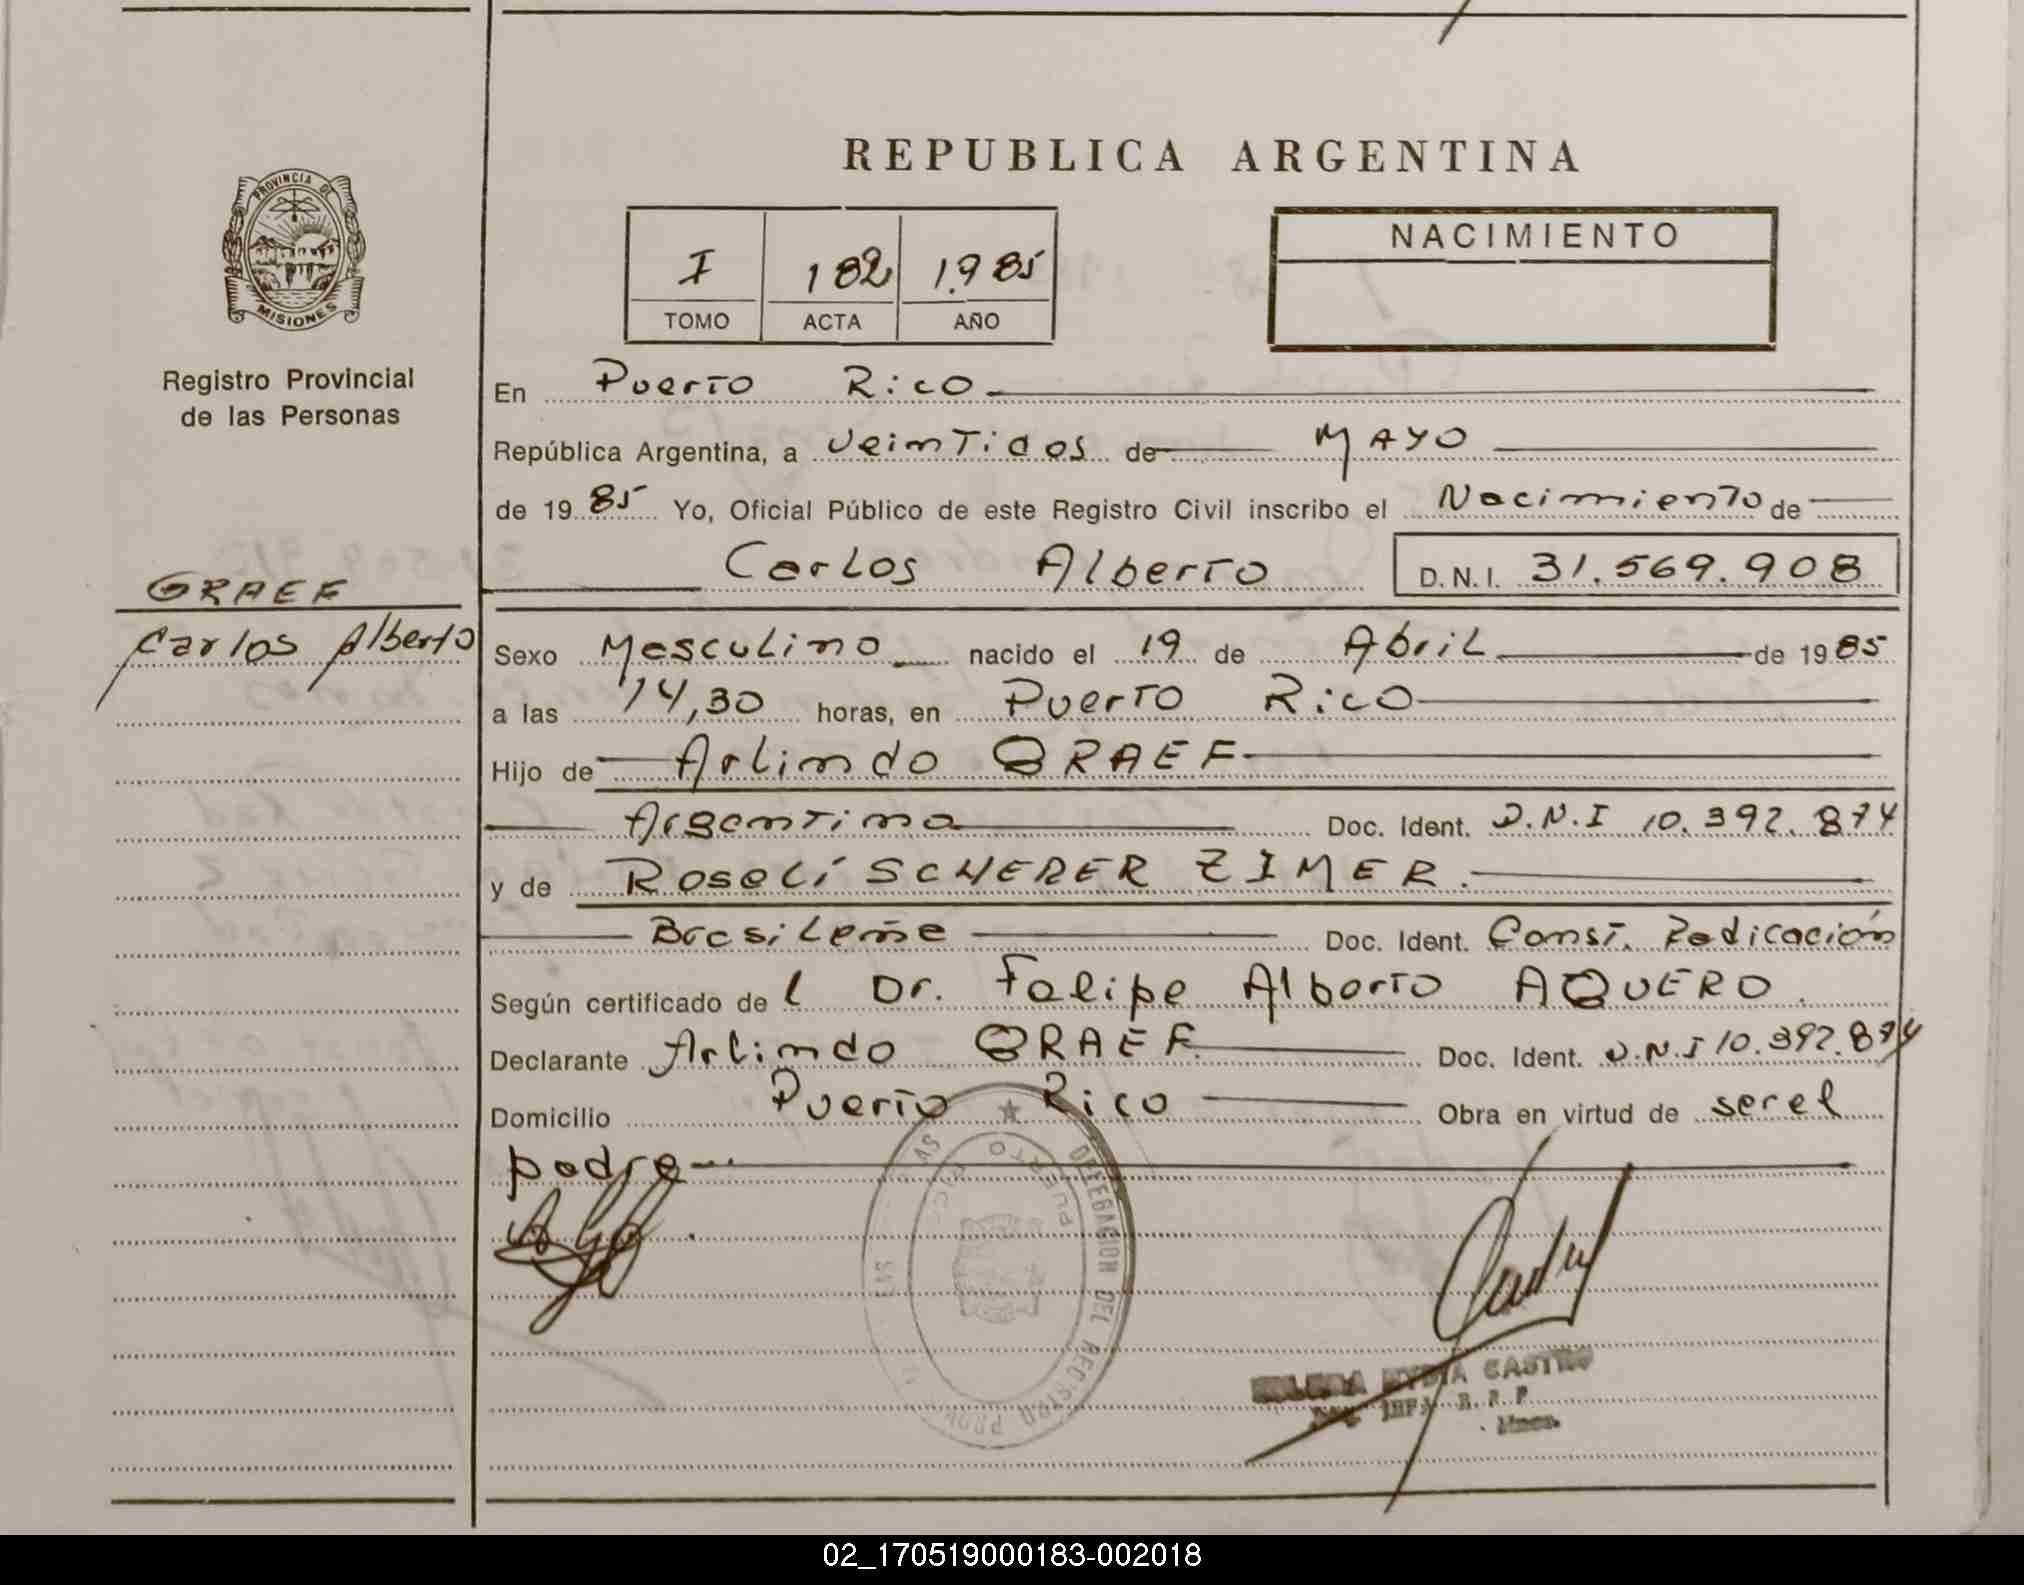 REPUBLICA ARGENTINA
PROVINCIA DE
MISIONES
Registro Provincial
de las Personas
GRAEF
Carlos Alberto
I 182 1.985
TOMO ACTA AÑO
NACIMIENTO
En Puerto Rico
República Argentina, a veintidos de MAYO
de 19 85 Yo, Oficial Público de este Registro Civil inscribo el Nacimiento de
Carlos Alberto D.N.I. 31.569.908
Sexo Masculino nacido el 19 de Abril de 19 85
a las 14,30 horas, en Puerto Rico
Hijo de Arlindo GRAEF
Argentino Doc. Ident. D.N.I 10.392.874
y de Roselí SCHERER ZIMER.
Brasileña Doc. Ident. Const. Radicación
Según certificado de l Dr. Felipe Alberto AGUERO.
Declarante Arlindo GRAEF. Doc. Ident. D.N.I 10.392.874
Domicilio Puerto Rico Obra en virtud de ser el
padre
DELEGACION DEL REGISTRO PROV
PUERTO RICO
CASTRO
02_170519000183-002018